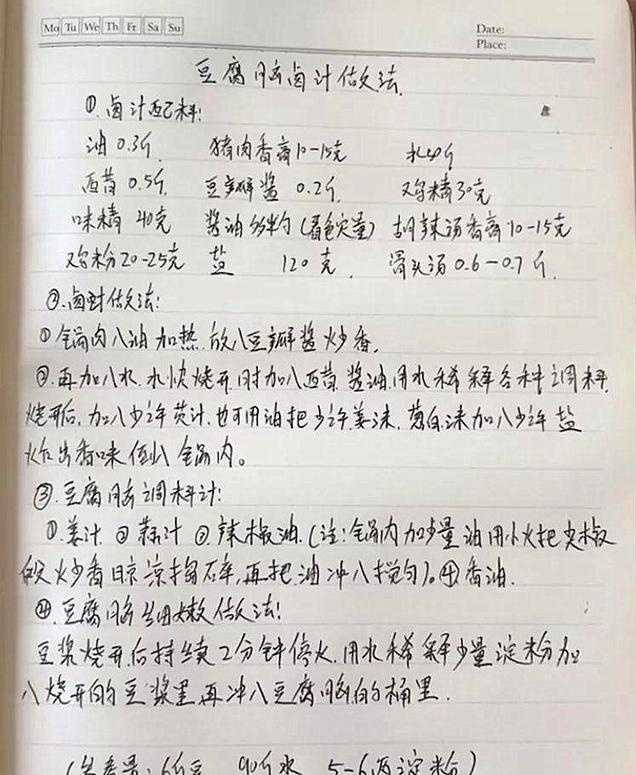 Mo Tu We Th Fr Sa Su
Date:
Place:
豆腐脑卤汁做法
①.卤汁配料:
油 0.3斤 猪肉香膏10-15克 水40斤
0.5斤. 豆瓣酱 0.2斤. 鸡精30克
味精 40克 酱油 (着色定量) 胡辣汤香膏10-15克
鸡粉20-25克 盐 120克. 骨头汤0.6-0.7斤.
②.卤汁做法:
①锅内入油加热.放入豆瓣酱炒香.
②.再加入水.水快烧开时加入 酱油.用水稀释各种调料.
烧开后.加入少许芡汁.也可用油把少许姜沫.葱白沫加入少许盐
炸出香味倒入锅内。
③.豆腐脑调料汁:
①.姜汁 ②蒜汁 ③辣椒油.(注:锅内加少量油用小火把尖椒
炒香晾凉捣碎.再把油冲入搅匀)。④香油.
④.豆腐脑细嫩做法!
豆浆烧开后持续2分钟停火.用水稀释少量淀粉加
入烧开的豆浆里再冲入豆腐脑的桶里.
(参考量:6斤豆 90斤水 5-6两淀粉)